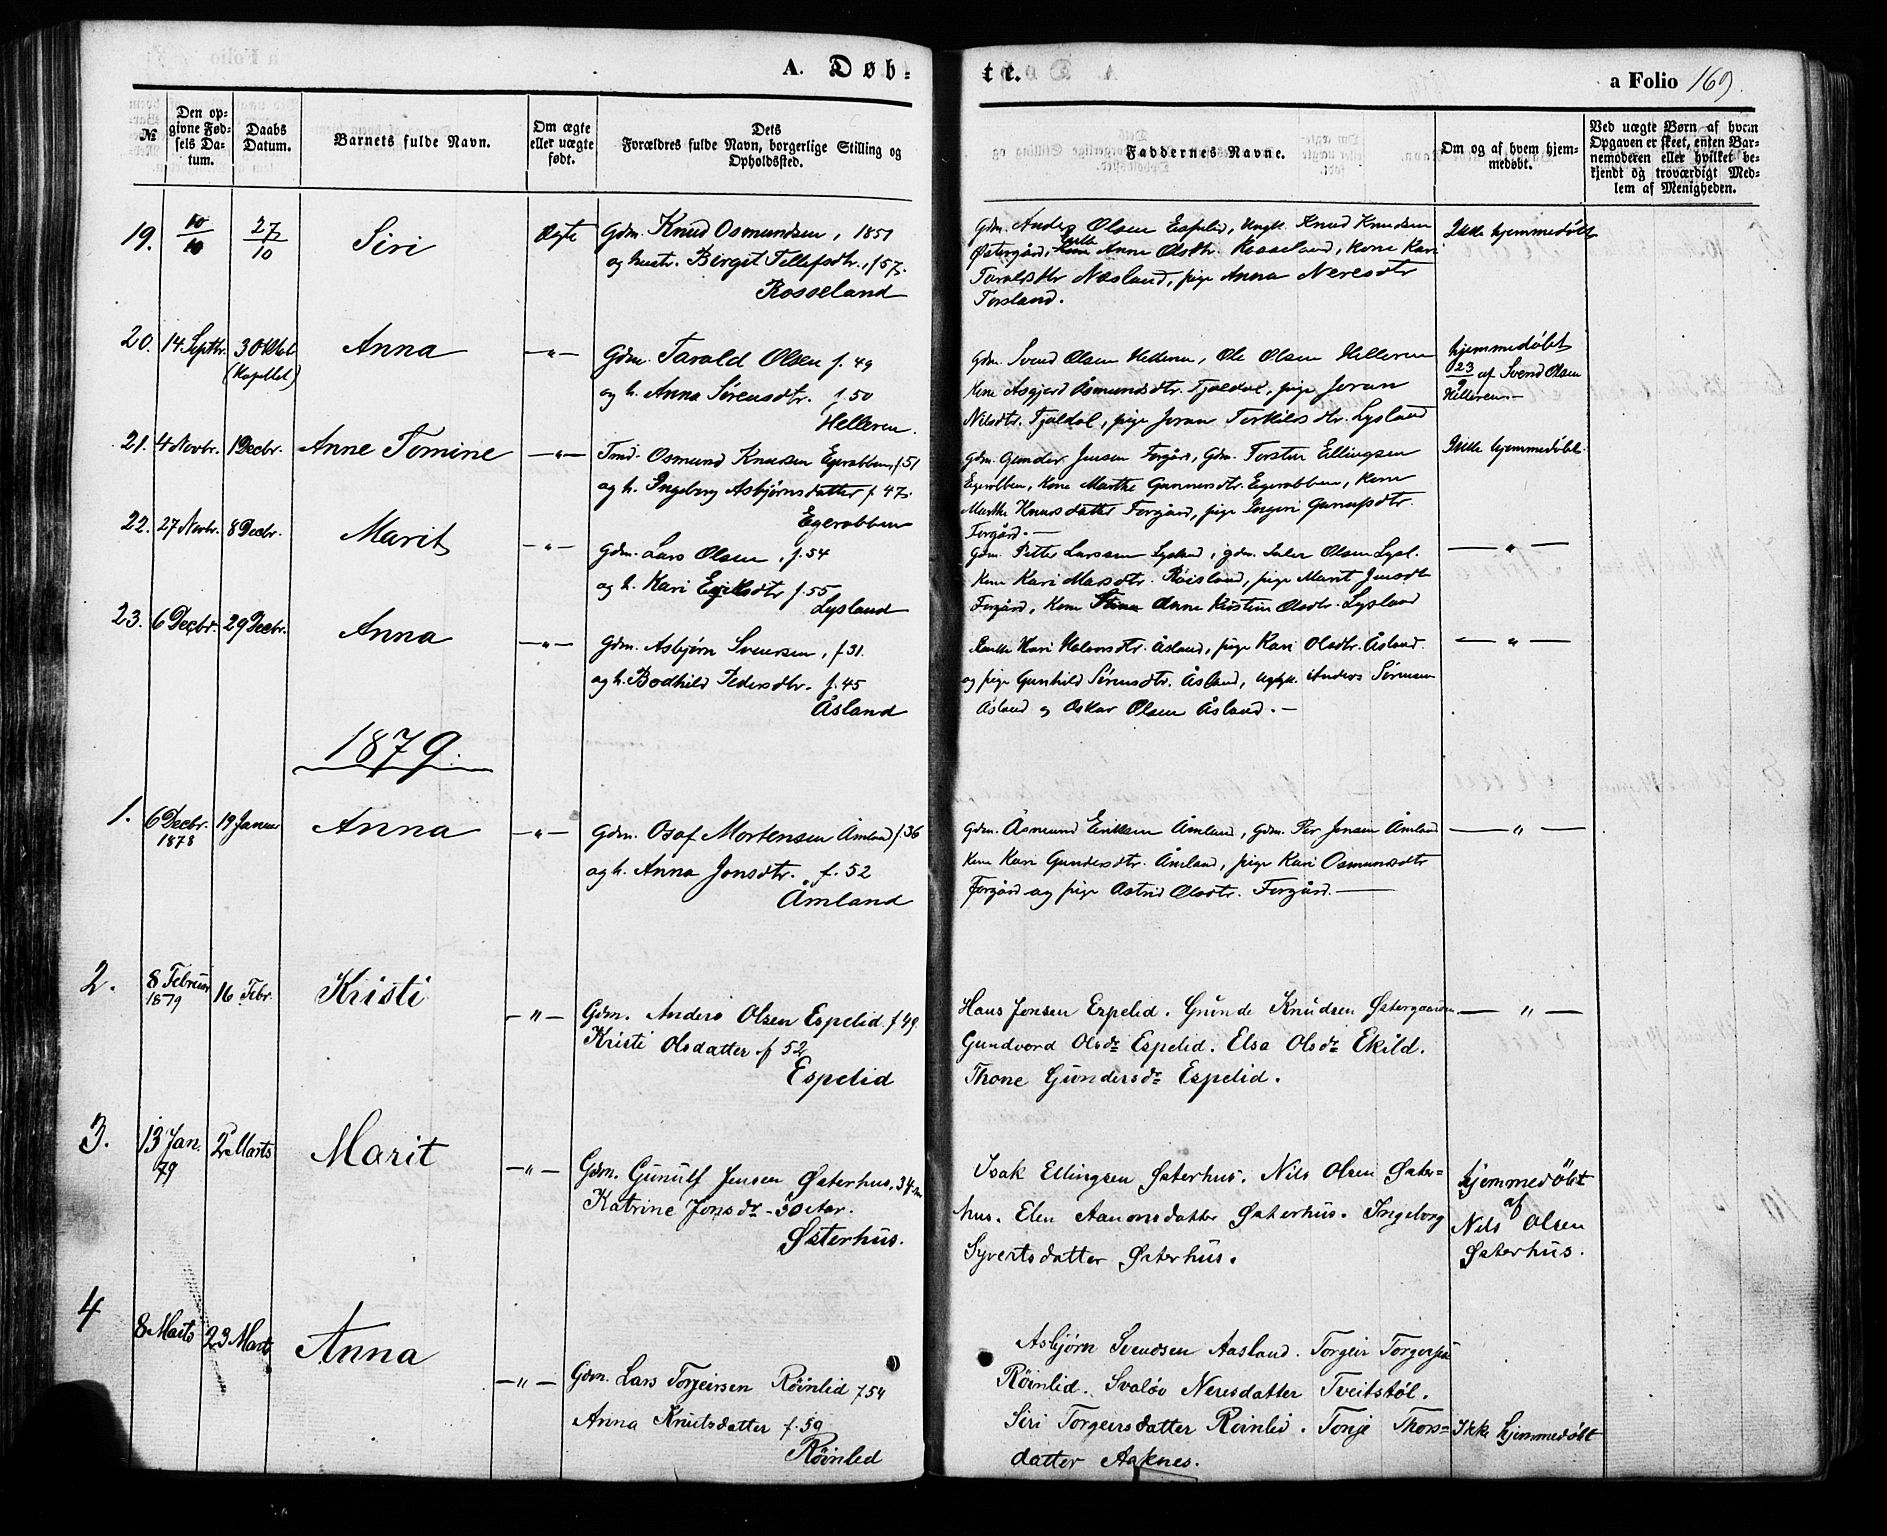 A. Døb-
te.
a Folio 169.
№
Den op-
givne Fød-
sels Da-
tum.
Daabs
Datum.
Barnets fulde Navn.
Om ægte
eller uægte
født.
Dets
Forældres fulde Navn, borgerlige Stilling og
Opholdssted.
Faddernes Navne.
Om og af hvem hjem-
medøbt.
Ved uægte Børn af hvem
Opgaven er skeet, enten Bar-
nemoderen eller hvilket be-
kjendt og troværdigt Med-
lem af Menigheden.
19.
10/10
27/10
Siri
Ægte
Gdm. Knud Osmundsen, 1851
og hustr. Birgit Tellefsdtr., f 57.
Rosseland
Gdm. Anders Olsen Espelid, Ungk. Knud Knudsen
Østergård, Anne Olsdtr. Rosseland, Kone Kari
Taraldsdtr Næsland, pige Anna Neresdtr
Forsland.
Ikke hjemmedøbt
20.
14 Septbr.
3 Oktob
(Kapellet)
Anna
—"—
Gdm. Tarald Olsen f. 49
og h. Anna Sørensdtr. f. 50
Helleren.
Gdm. Svend Olsen Helleren, Ole Olsen Helleren
Kone Asgjerd Åsmundsdtr. Tjaldal, pige Joran
Nilsdtr. Tjaldal, pige Joran Terkilsdtr. Lysland
hjemmedøbt
23/9 af Svend Olsen
Helleren.—
21.
4 Novbr.
1 Decbr.
Anne Tomine
—"—
Osmund Knudsen Egerabben, f. 51
og h. Ingeborg Asbjørnsdatter f. 47.
Egerabben
Gdm. Gunder Jensen Forgård, Gdm. Torsten Ellingsen
Egerabben, Kone Marthe Gunnersdtr. Egerabben, Kone
Marthe Knudsdatter Forgård, pige Ingeri Gunulfsdtr.
Forgård.—
Ikke hjemmedøbt
22.
27 Novbr.
8 Decbr.
Marit
—"—
Gdm. Lars Olsen, f. 54
og h. Kari Eriksdtr f. 55
Lysland
Gdm. Petter Larssen Lysland, gdm. Olsen Lysl.
Kone Kari Marsdtr. Røisland, pige Marit Jensdtr
Forgård, Kone Anne Kirstine Olsdtr. Lysland
—"—
23.
6 Decbr.
29 Decbr.
Anna
—"—
Gdm. Asbjørn Svensen, f. 31.
og h. Bodhild Pedersdtr. f. 45
Åsland
Enke Kari Halvorsdtr. Åsland, pige Kari Olsdtr. Åsland.
og pige Gunhild Sørensdtr. Åsland, Ugkk. Anders Sørensen
Åsland og Oskar Olsen Åsland.—
—"—
1879.
1.
6 Decbr.
1878
19 Januar
Anna
—"—
Gdm. Osuf Mortensen Åmland f. 36
og h. Anna Jonsdtr. f. 52
Åmland
Gdm. Åsmund Eriksen Åmland, Gdm. Per Jensen Åmland
Kone Kari Gundersdtr. Åmland, pige Kari Osmundsdtr
Forgård og pige Astrid Olsdtr. Forgård.—
—"—
2.
8 Februar
1879
16 Febr.
Kristi
—"—
Gdm. Anders Olsen Espelid f 49.
Kristi Olsdatter f 52
Espelid
Hans Jensen Espelid. Grunde Knudsen Østergaarden
Gundvord Olsdr Espelid. Elsa Olsdr Ekild.
Thone Gundersdr Espelid.
—"—
3.
13 Jan.
79
2 Marts
Marit
—"—
Gdm. Gunulf Jensen Østerhus. 34
Katrine Jonsdr - 30 Aar.
Østerhus.
Isak Ellingsen Østerhus. Nils Olsen Øster=
hus. Elen Aanonsdatter Østerhus. Ingeborg
Syvertsdatter Østerhus.
hjemmedøbt
af
Nils Olsen
Østerhus.
4
8 Marts
23 Marts
Anna
—"—
Gdm. Lars Torjeirsen Røinlid f 54
Anna Knutsdatter f. 59
Røinlid
Asbjørn Svendsen Aasland. Torgeir Torgersen
Røinlid. Svaløv Neresdatter Tveitstøl.
Siri Torgeirsdatter Røinlid. Tonje Thors=
datter Aaknes.
Ikke hjemmedøbt